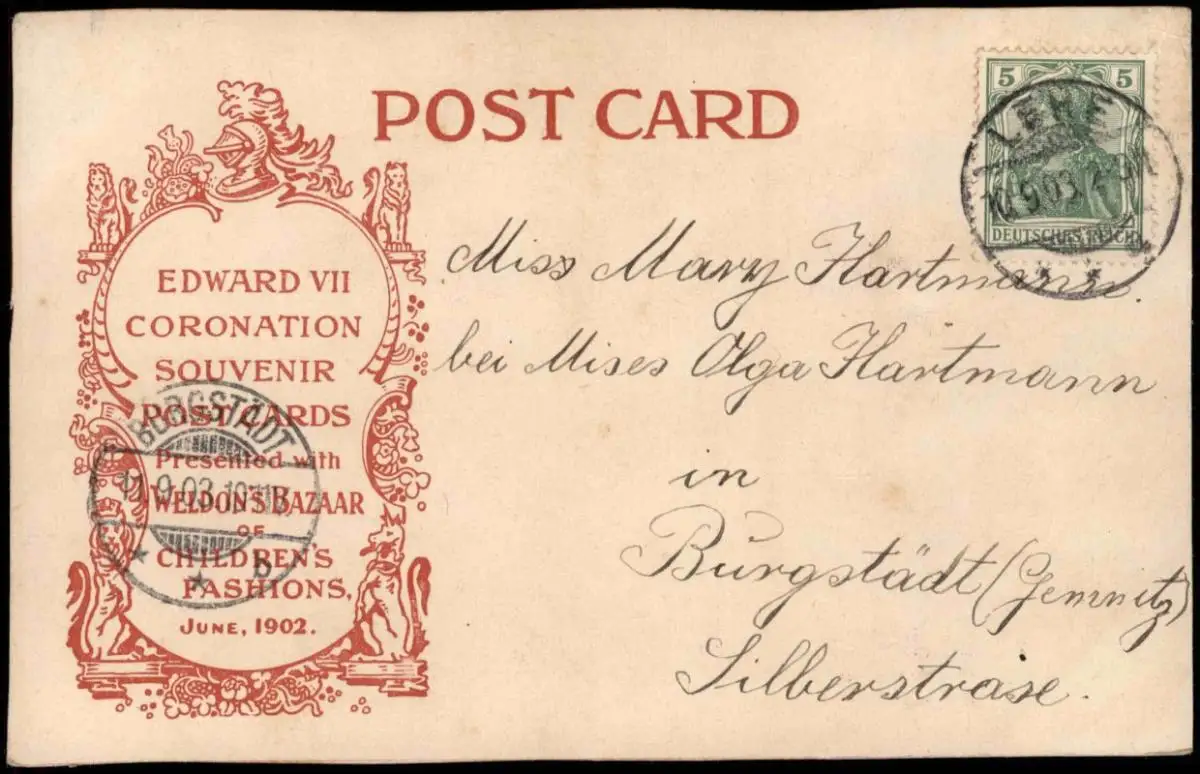 POST CARD
5 5
DEUTSCHES REICH
LEHE
9.03
EDWARD VII
CORONATION
SOUVENIR
POST CARDS
Presented with
WELDON'S BAZAAR
OF
CHILDREN'S
FASHIONS,
JUNE, 1902.
BURGSTÄDT
9.03
b
Miss Mary Hartmann.
bei Mises Olga Hartmann
in
Burgstädt (Jemnitz)
Silberstrase.